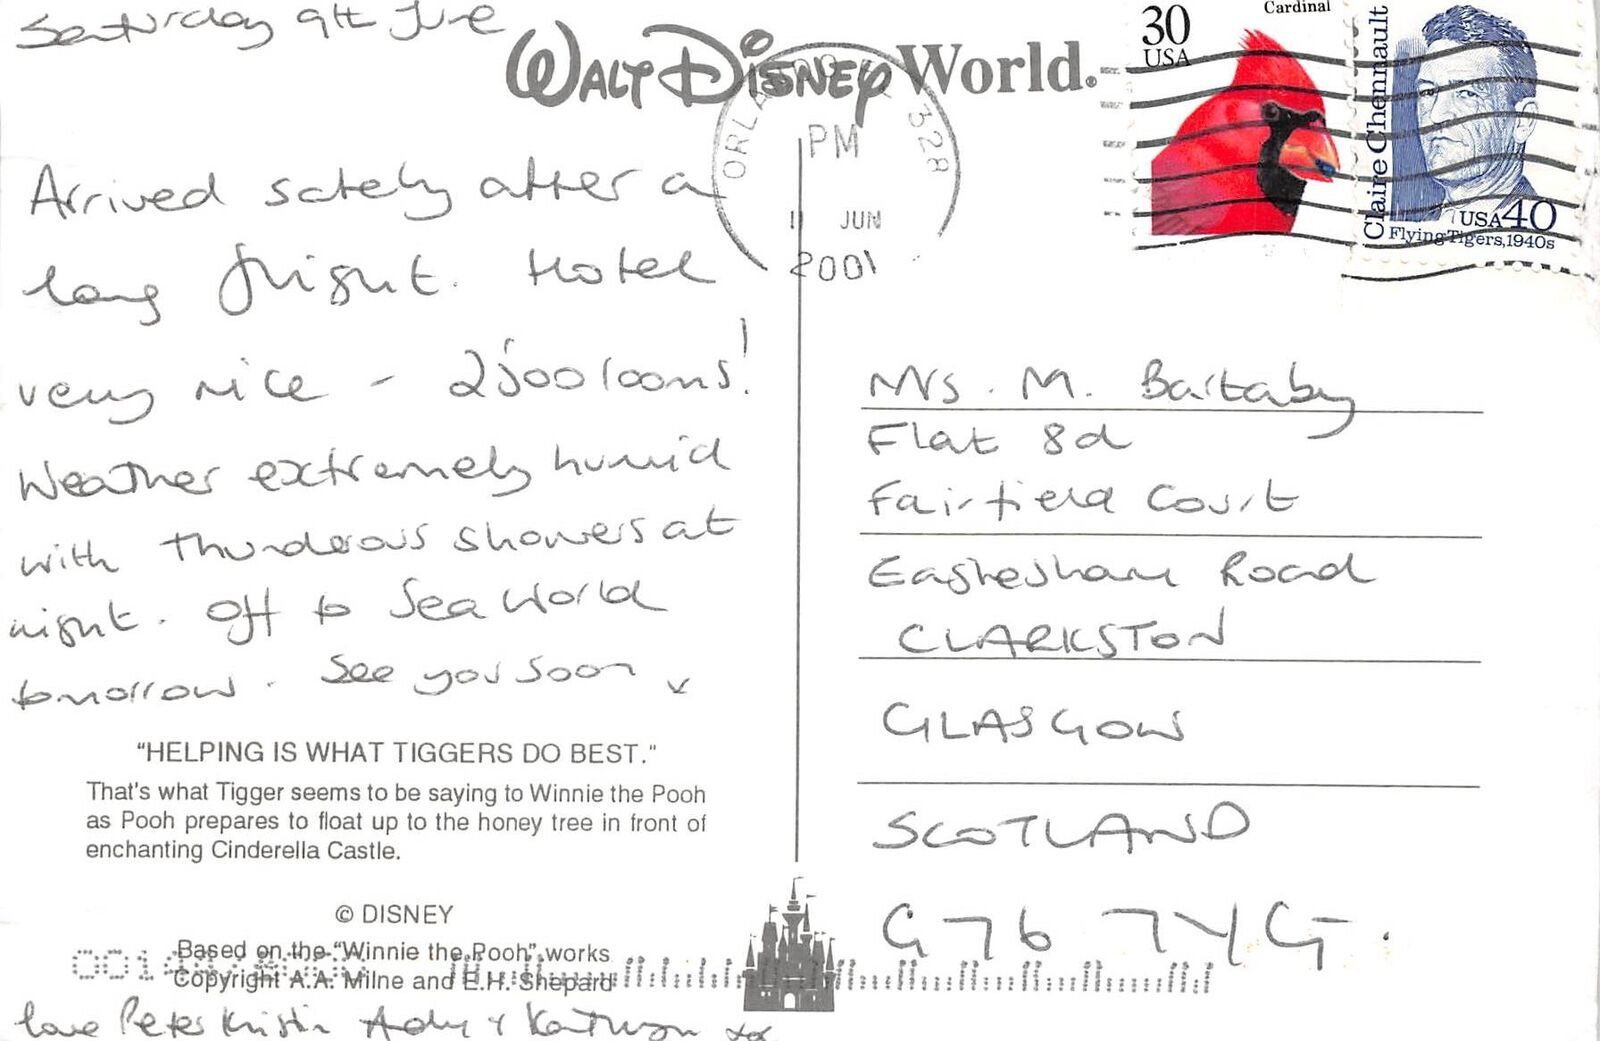 Saturday 9th June
WALT DISNEY World.
Arrived safely after a
long flight. Hotel
very nice - 2500 rooms!
Weather extremely humid
with thunderous showers at
night. Off to Sea World
tomorrow. See you soon
"HELPING IS WHAT TIGGERS DO BEST."
That's what Tigger seems to be saying to Winnie the Pooh
as Pooh prepares to float up to the honey tree in front of
enchanting Cinderella Castle.
© DISNEY
Based on the "Winnie the Pooh" works
Copyright A.A. Milne and E.H. Shepard
love Peter Kristin Andy & Kathryn xox
ORLANDO FL 328
PM
11 JUN
2001
Cardinal
30
USA
Claire Chennault
USA 40
Flying Tigers, 1940s
Mrs. M. Battaby
Flat 8d
Fairfield Court
Eaglesham Road
CLARKSTON
GLASGOW
SCOTLAND
G76 7YG.